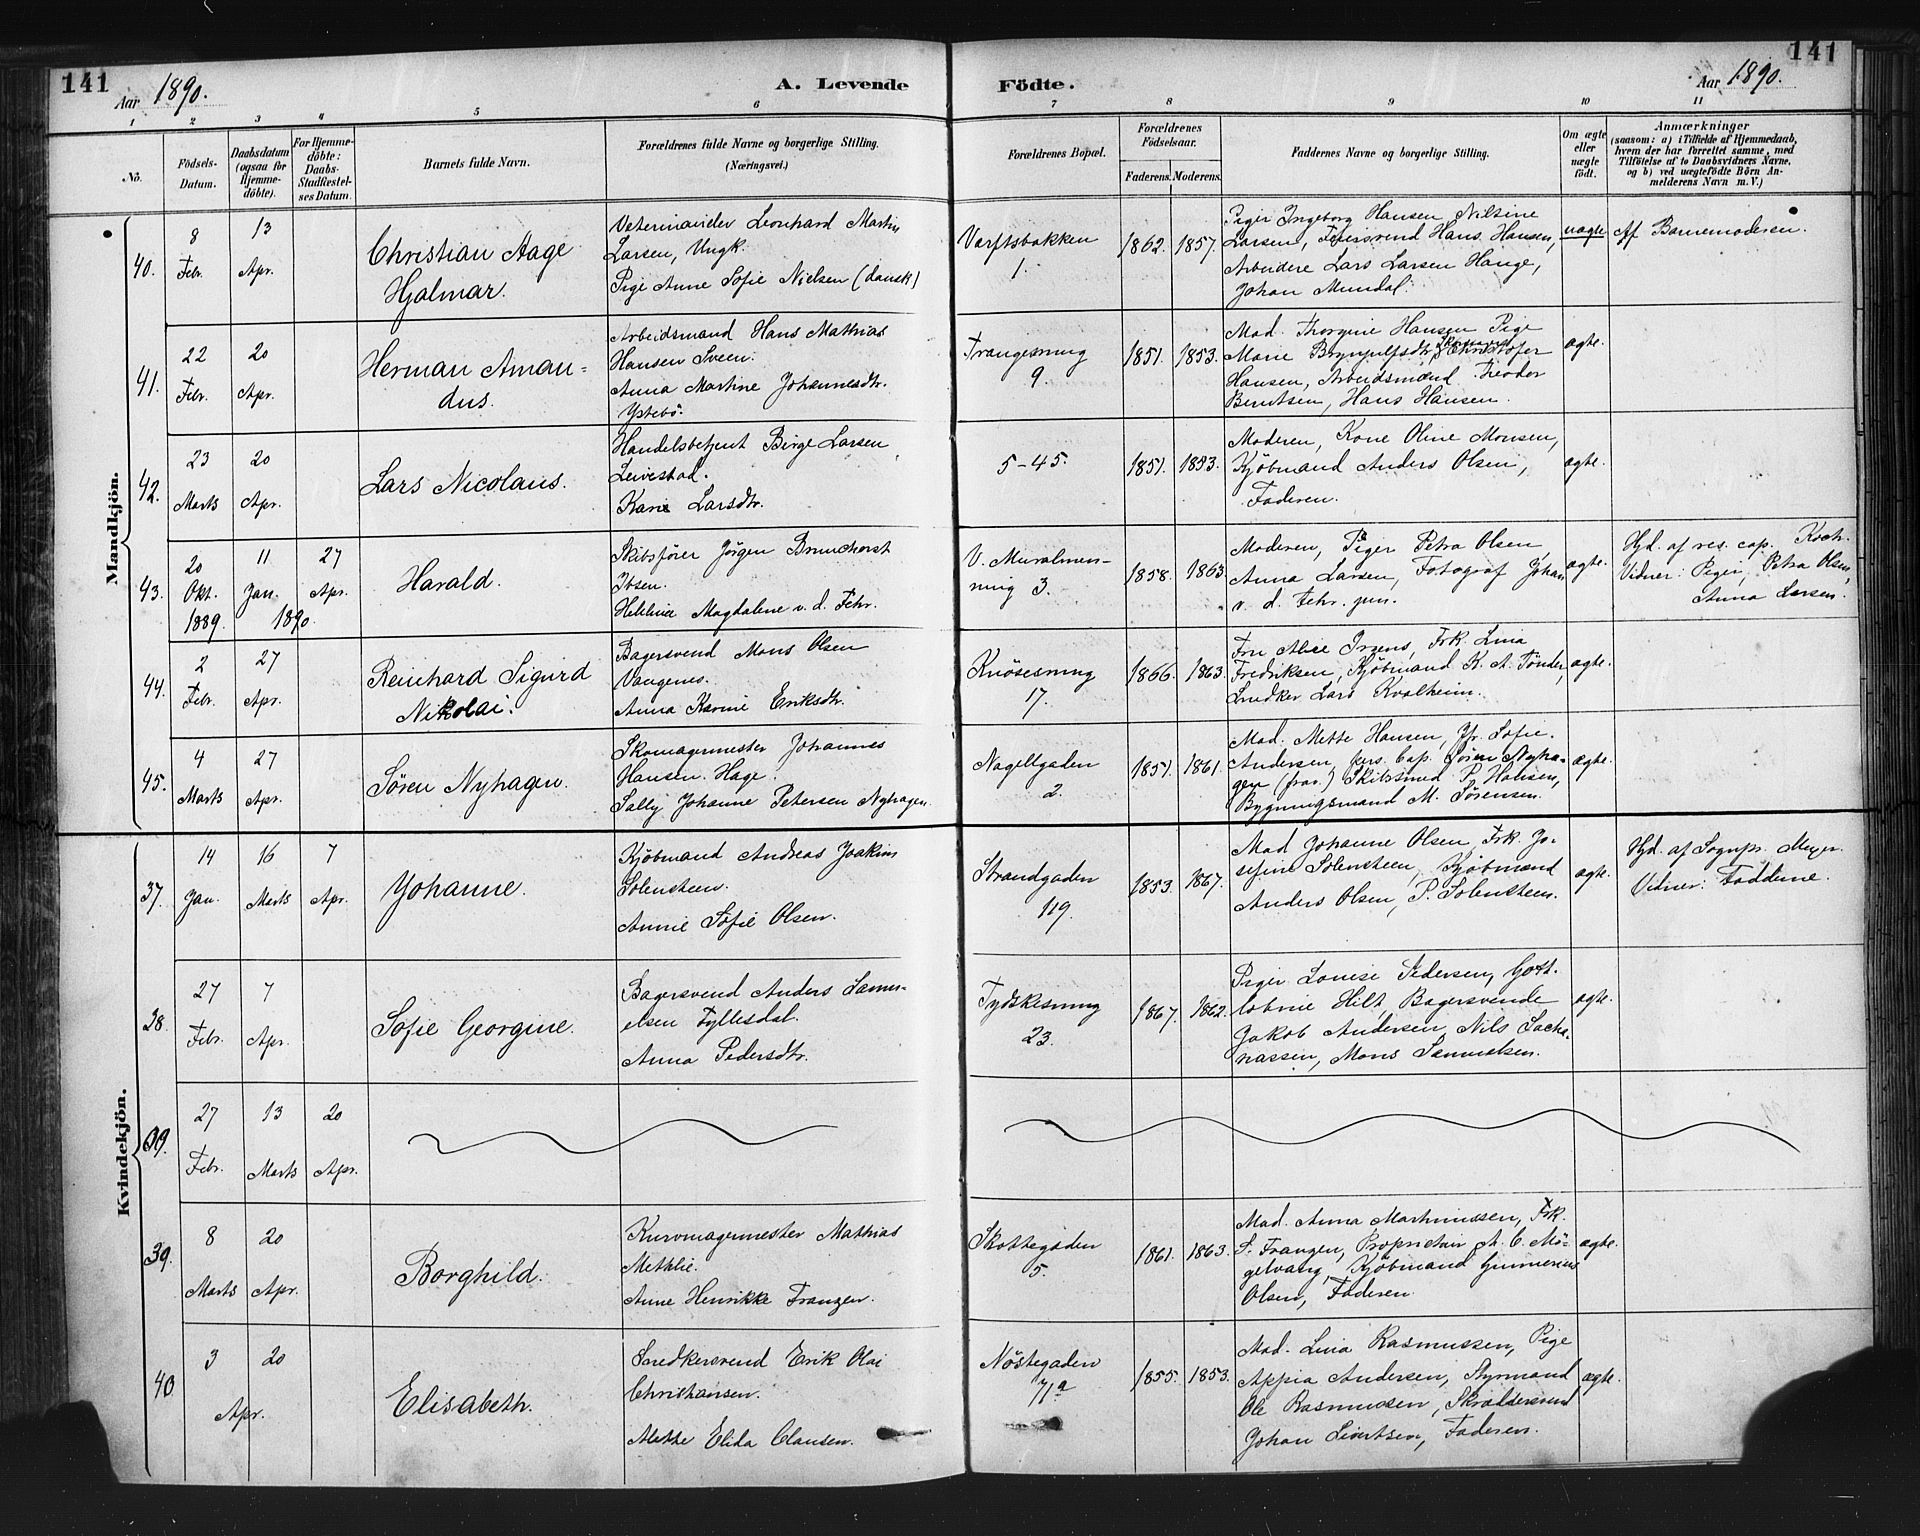 141
Aar 1890.
A. Levende
Födte.
Aar 1890.
141
1 2 3 4 5 6 7 8 9 10 11
No.
Födsels-
Datum.
Daabsdatum
(ogsaa for
Hjemme-
döbte).
For Hjemme-
döbte:
Daabs-
Stadfæstel-
ses Datum.
Barnets fulde Navn.
Forældrenes fulde Navne og borgerlige Stilling.
(Næringsvei.)
Forældrenes Bopæl.
Forældrenes
Födselsaar.
Faderens. Moderens.
Faddernes Navne og borgerlige Stilling.
Om ægte
eller
uægte
födt.
Anmærkninger
(saasom: a) i Tilfælde af Hjemmedaab,
hvem der har forrettet samme, med
Tilföielse af to Daabsvidners Navne,
og b) ved uægtefödte Börn An-
melderens Navn m. V.)
Mandkjön.
40.
8
Febr.
13
Apr.
Christian Aage
Hjalmar.
Veterinairelev Leonhard Martin
Larsen, Ungk.
Pige Anne Sofie Nielsen (dansk)
Verftsbakken
1.
1862. 1857.
Piger Ingeborg Hansen, Nilsine
Larsen, Hans Hansen,
Arbeidere Lars Larsen Hauge,
Johan Mundal.
uægte
Af Barnemoderen.
41.
22
Febr.
20
Apr.
Herman Aman-
dus.
Arbeidsmand Hans Mathias
Hansen Sveen.
Anna Martine Johannesdtr.
Ystebö.
Trangesmug
9.
1851. 1853.
Mad. Thorgine Hansen, Pige
Marie Brynjulfsdtr., Christofer
Hansen, Arbeidsmænd Teodor
Berntsen, Hans Hansen.
ægte.
42.
23
Marts
20
Apr.
Lars Nicolaus.
Handelsbetjent Birge Larsen
Leivestad.
Kari Larsdtr.
5-45.
1851. 1853.
Moderen, Kone Oline Monsen,
Kjöbmand Anders Olsen,
Faderen.
ægte.
43.
20
Okt.
1889.
11
Jan.
1890.
27
Apr.
Harald.
Skibsförer Jörgen Brunchorst
Ibsen.
Helene Magdalene v. d. Fehr.
V. Muralmen-
ning 3.
1858. 1863.
Moderen, Piger Petra Olsen
Anna Larsen, Fotograf Johan
v. d. Fehr. jun.
ægte.
Hjd. af res. cap. Koch.
Vidner: Piger, Petra Olsen,
Anna Larsen.
44.
2
Febr.
27
Apr.
Reinhard Sigurd
Nikolai.
Bagersvend Mons Olsen
Vangenes.
Anna Karine Eriksdtr.
Knösesmug
17.
1866. 1863.
Fru Alise Irgens, Frk. Lina
Fredriksen, Kjöbmand K. A. Tönder,
Snedker Lars Kvalheim.
ægte.
45.
4
Marts
27
Apr.
Sören Nyhagen.
Skomagermester Johannes
Hansen Hage.
Sally Johanne Petersen Nyhagen
Nagellgaden
2.
1851. 1861.
Mad. Mette Hansen, Jfr. Sofie
Andersen, pers. Cap. Sören Nyha-
gen (frav.) Skibssmed P. Hansen,
Bygningsmand M. Sörensen.
ægte.
Kvindekjön.
37.
14
Jan.
16
Marts
7
Apr.
Johanne.
Kjöbmand Andreas Joakim
Solensteen.
Annie Sofie Olsen.
Strandgaden
119.
1853. 1867.
Mad. Johanne Olsen, Frk. Jo-
sefine Solensteen, Kjöbmænd
Anders Olsen, P. Solensteen.
ægte.
Hjd. af Sognepr. Meyer.
Vidner: Fadderne.
38.
27
Febr.
7
Apr.
Sofie Georgine.
Bagersvend Anders Samu-
elsen Fyllesdal.
Anna Pedersdtr.
Tydskesmug
23.
1867. 1862.
Piger Louise Pedersen, Gott-
lobine Hilt, Bagersvende
Jakob Andersen, Nils Zacha-
riassen, Mons Samuelsen.
ægte.
39.
27
Febr.
13
Marts
20
Apr.
39.
8
Marts
20
Apr.
Borghild.
Kurvmagermester Mathias
Methlie.
Anne Henrikke Franzen.
Skottegaden
5.
1861. 1863.
Mad. Anna Martinussen, Frk.
S. Franzen, Proprietær A. C. Mö-
gelvang, Kjöbmand Gunnerius
Olsen, Faderen.
ægte.
40
3
Apr.
20
Elisabeth.
Snedkersvend Erik Olai
Christiansen.
Mette Elida Clausen.
Nöstegaden
71a
1855. 1853.
Mad. Lina Rasmussen, Pige
Appia Andersen, Styrmand
Ole Rasmussen, Skræddersvend
Johan Sivertsen, Faderen.
ægte.